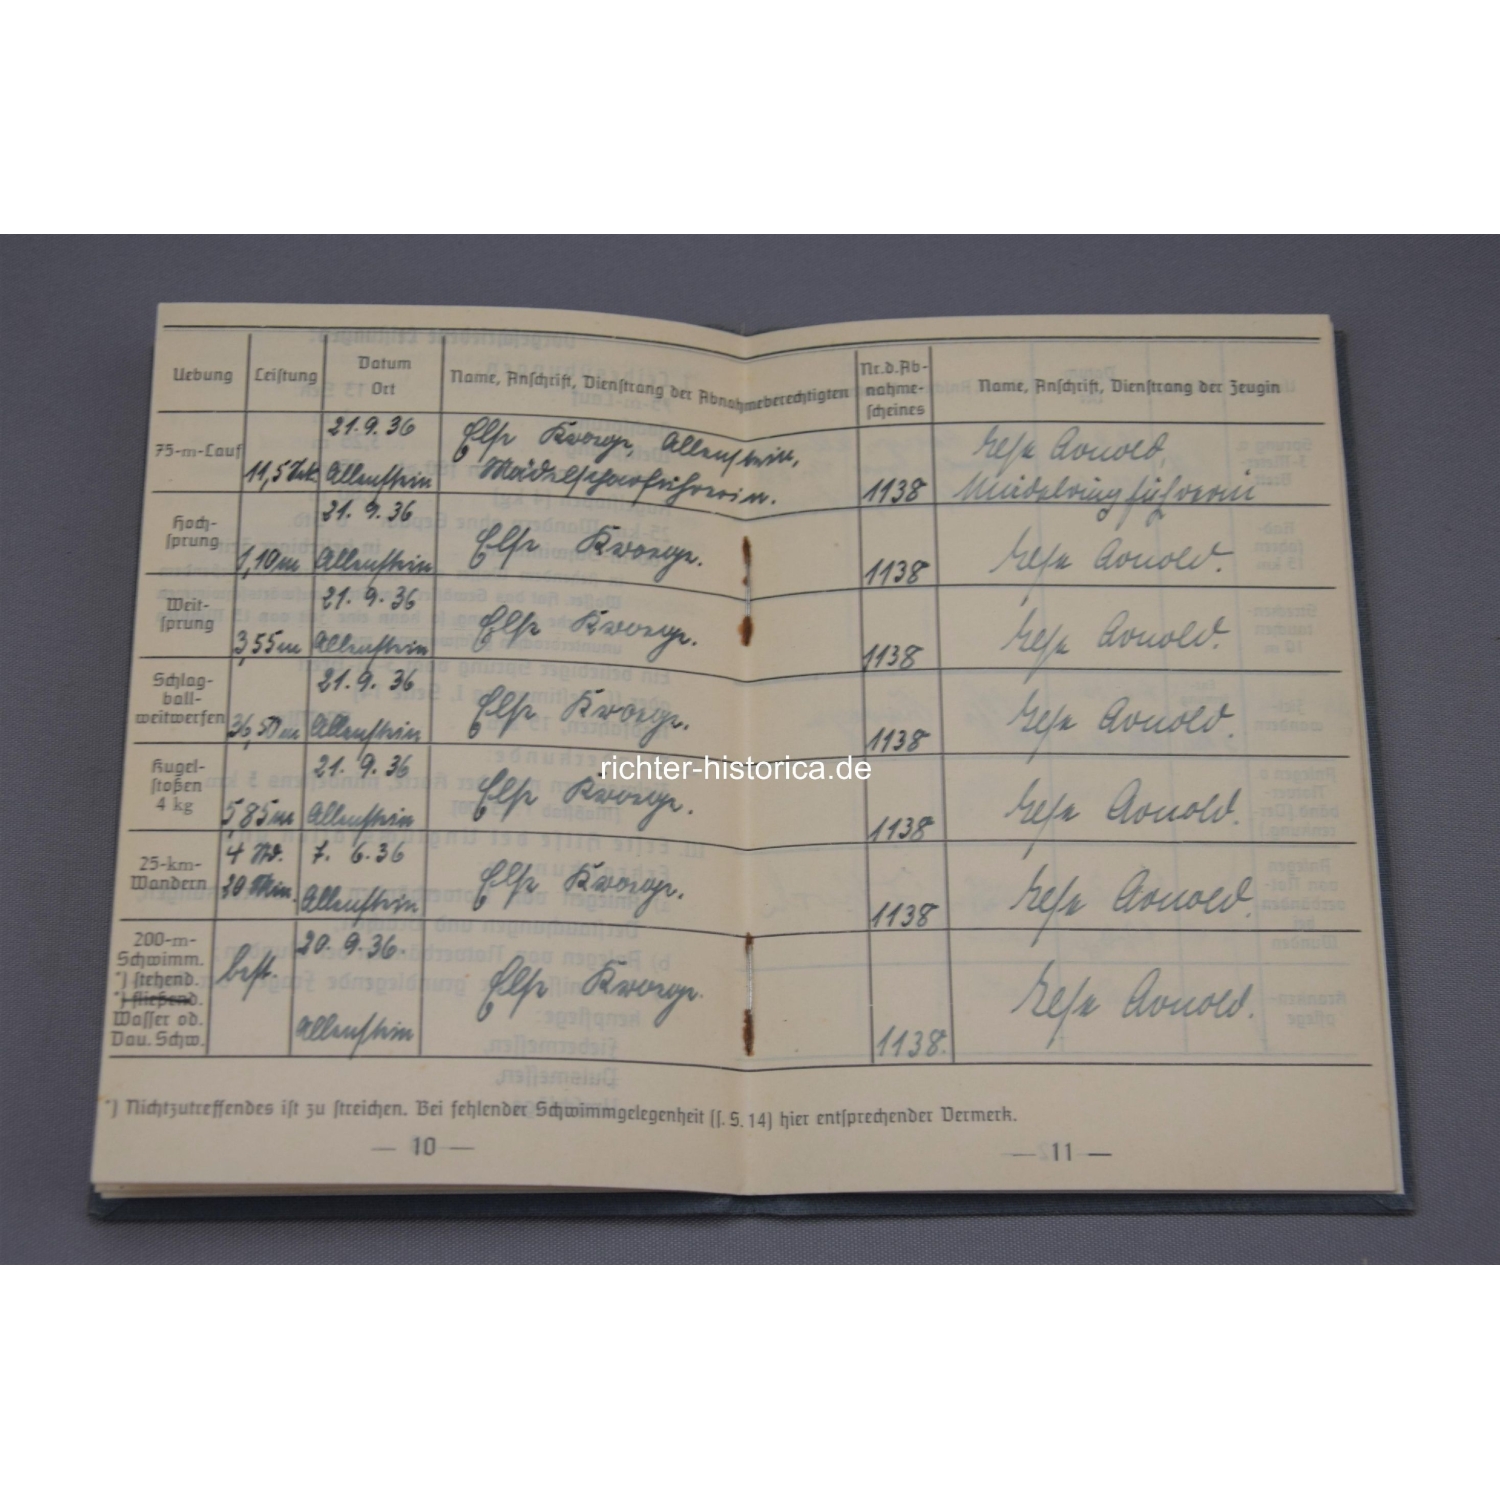 Uebung Leistung Datum Ort Name, Anschrift, Dienstrang der Abnahmeberechtigten Nr. d. Ab-nahme-scheines Name, Anschrift, Dienstrang der Zeugin
75-m-Lauf 11,5 Sek. 21.9.36 Allenstein Else Allenstein, Mädelscharführerin. 1138 Arnold, Mädelringführerin
Hoch-sprung 1,10 m 21.9.36 Allenstein Else 1138 Arnold.
Weit-sprung 3,55 m 21.9.36 Allenstein Else 1138 Arnold.
Schlag-ball-weitwerfen 36,50 m 21.9.36 Allenstein Else 1138 Arnold.
Kugel-stoßen 4 kg 5,85 m 21.9.36 Allenstein Else 1138 Arnold.
25-km-Wandern 4 Std. 20 Min. 7.6.36 Allenstein Else 1138 Arnold.
200-m-Schwimm. *) stehend. *) fließend. Wasser od. Dau. Schw. best. 20.9.36. Allenstein Else 1138. Arnold.
*) Nichtzutreffendes ist zu streichen. Bei fehlender Schwimmgelegenheit (s. S. 14) hier entsprechender Vermerk.
— 10 — — 11 —
richter-historica.de